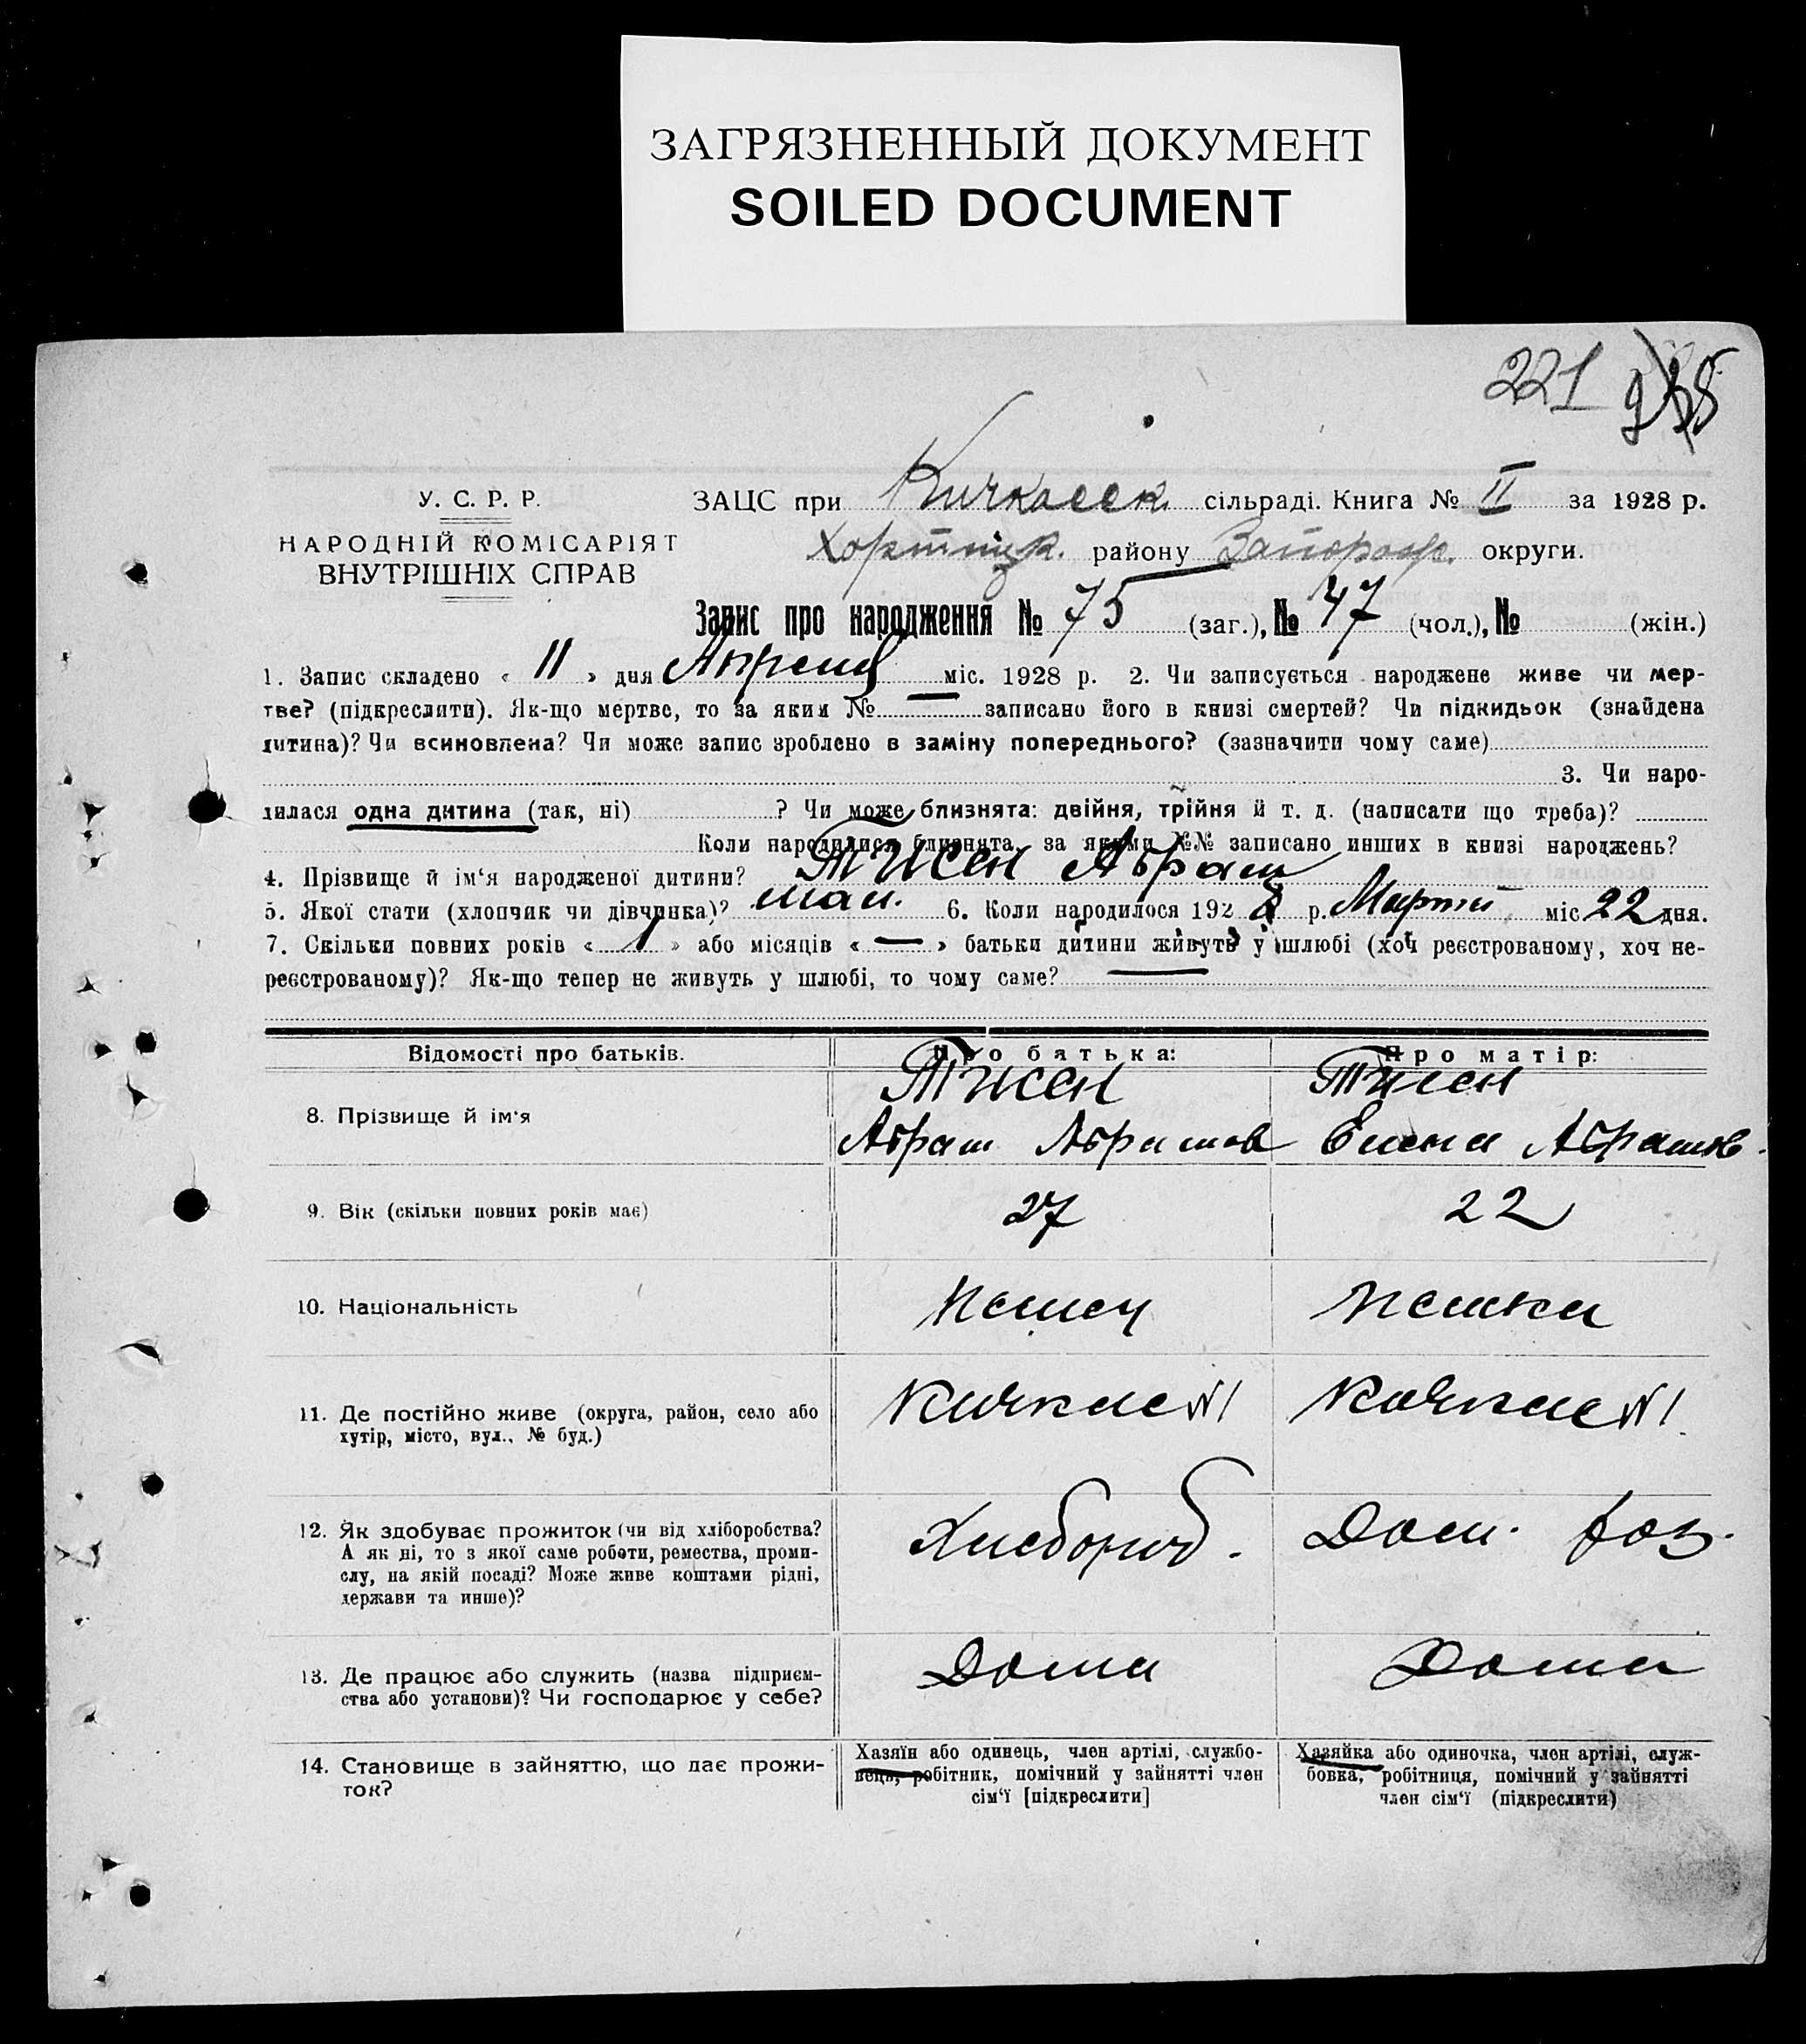 ЗАГРЯЗНЕННЫЙ ДОКУМЕНТ
SOILED DOCUMENT
221
У. С. Р. Р.
НАРОДНІЙ КОМІСАРІЯТ
ВНУТРІШНІХ СПРАВ
ЗАЦС при Кичкасск. сільраді. Книга № II за 1928 р.
Хортицк. району Запорож. округи.
Запис про народження № 75 (заг.), № 47 (чол.), № (жін.)
1. Запис складено « 11 » дня Апреля міс. 1928 р. 2. Чи записується народжене живе чи мер-
тве? (підкреслити). Як-що мертве, то за яким № — записано його в книзі смертей? Чи підкидьок (знайдена
дитина)? Чи всиновлена? Чи може запис зроблено в заміну попереднього? (зазначити чому саме)
3. Чи наро-
дилася одна дитина (так, ні) ? Чи може близнята: двійня, трійня й т. д. (написати що треба)?
Коли народилися близнята, за якими №№ записано инших в книзі народжень?
4. Прізвище й ім‘я народженої дитини? Тисен Абрам
5. Якої стати (хлопчик чи дівчинка)? мал. 6. Коли народилося 192 8 р. Марта міс 22 дня.
7. Скільки повних років « 1 » або місяців « — » батьки дитини живуть у шлюбі (хоч реєстрованому, хоч не-
реєстрованому)? Як-що тепер не живуть у шлюбі, то чому саме? —
Відомості про батьків. Про батька: Про матір:
8. Прізвище й ім‘я Тисен Тисен
Абрам Абрамов Елена Абрамов.
9. Вік (скільки повних років має) 27 22
10. Національність Немец Немка
11. Де постійно живе (округа, район, село або Кичкас N1 Кичкас N1
хутір, місто, вул., № буд.)
12. Як здобуває прожиток (чи від хліборобства? Хлебороб. Дом. хоз.
А як ні, то з якої саме роботи, ремества, проми-
слу, на якій посаді? Може живе коштами рідні,
держави та инше)?
13. Де працює або служить (назва підприєм- Дома Дома
ства або установи)? Чи господарює у себе?
14. Становище в зайняттю, що дає прожи- Хазяїн або одинець, член артілі, службо- Хазяйка або одиночка, член артілі, служ-
ток? вець, робітник, помічний у зайнятті член бовка, робітниця, помічний у зайнятті
сім‘ї [підкреслити] член сім‘ї (підкреслити)